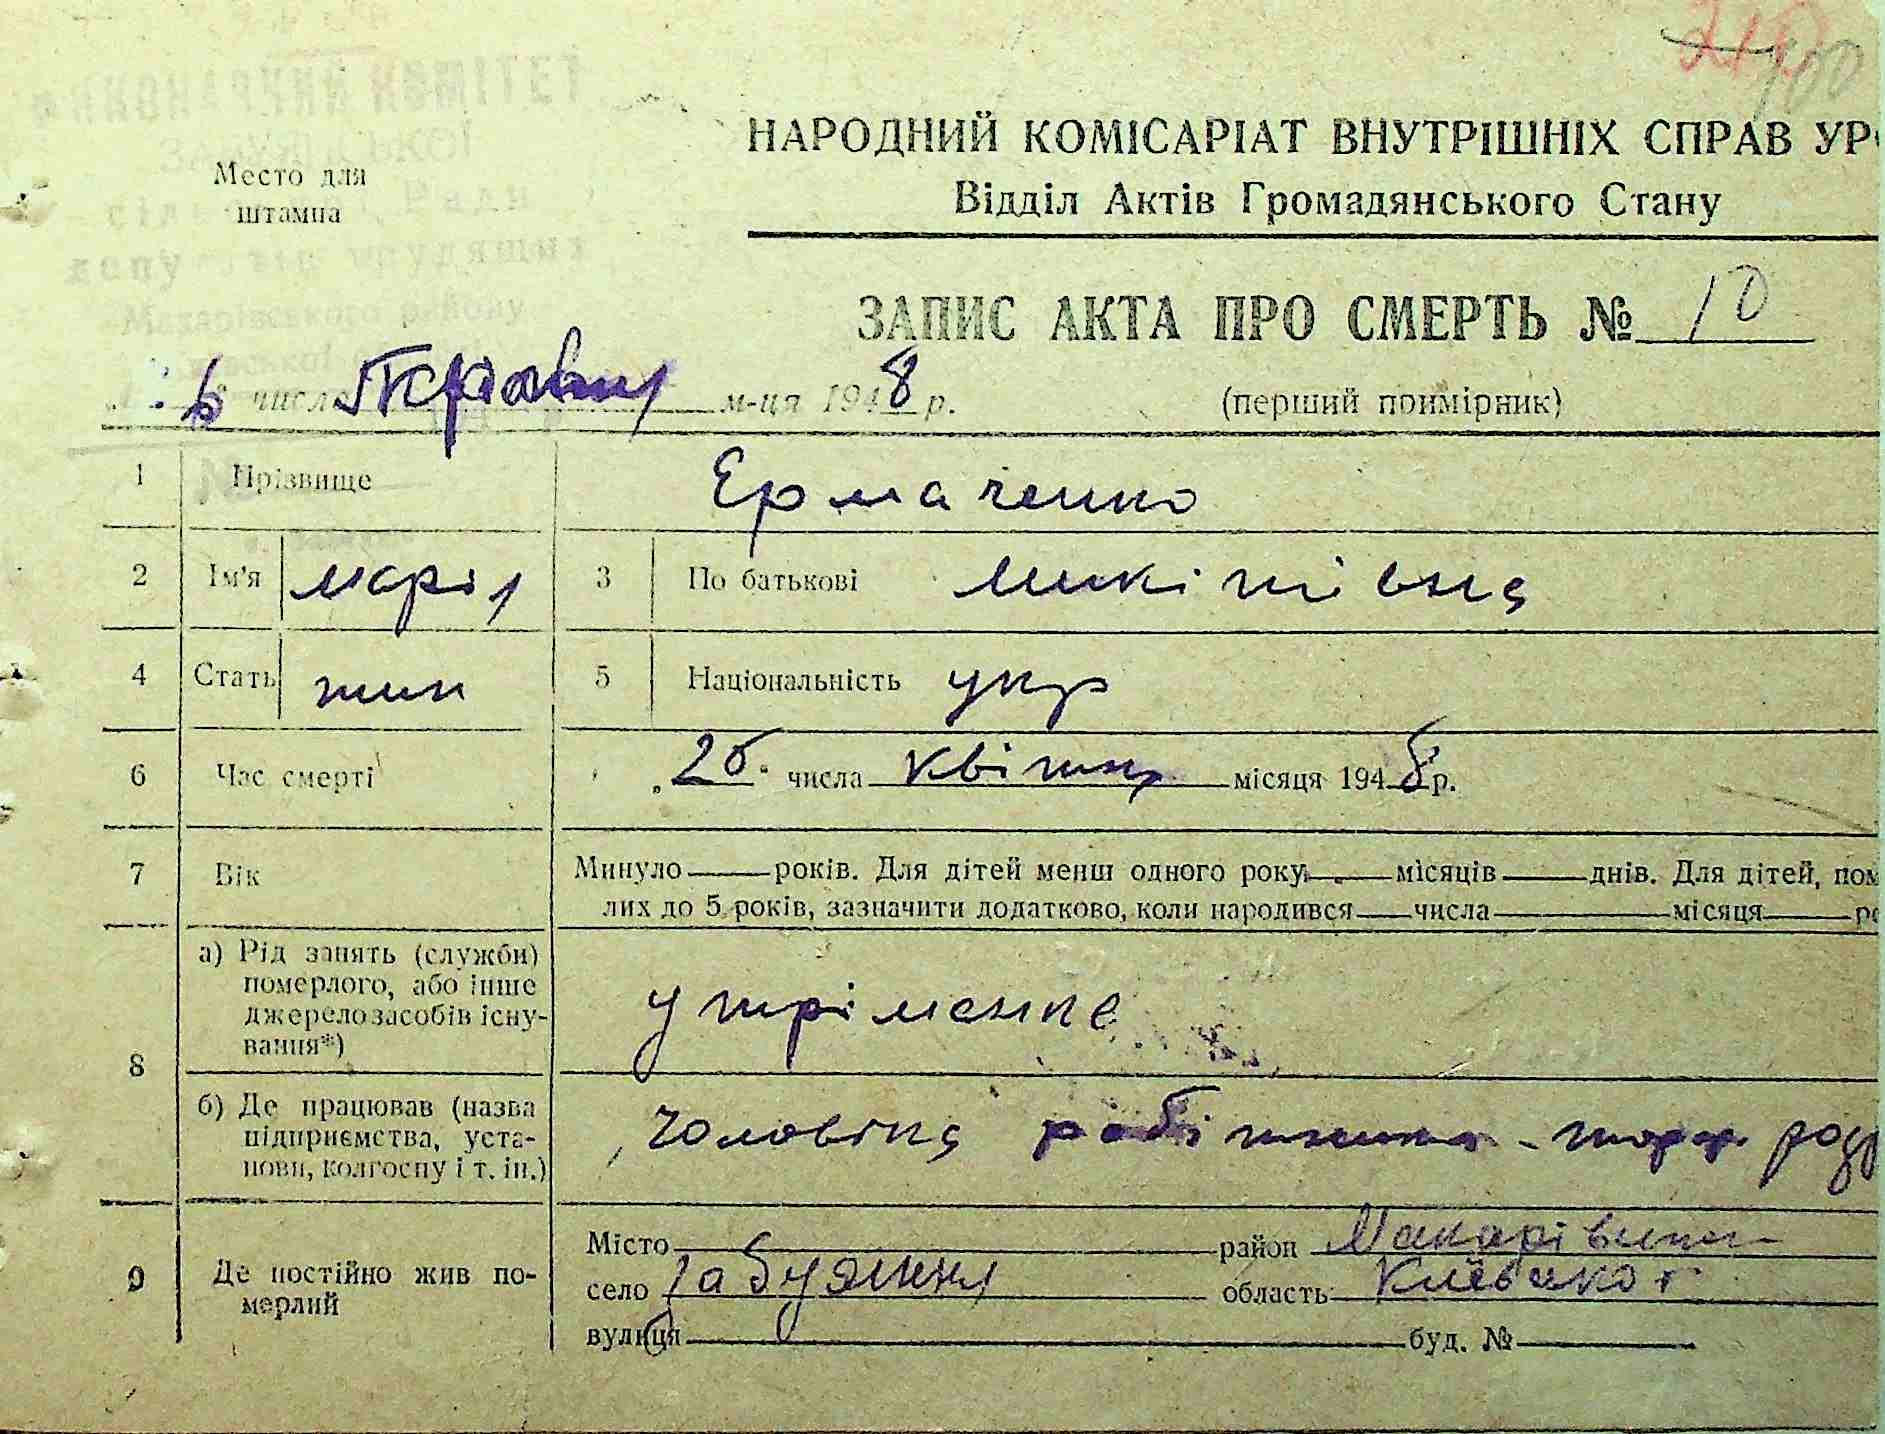 210
100
ВИКОНАВЧИЙ КОМІТЕТ
НАРОДНИЙ КОМІСАРІАТ ВНУТРІШНІХ СПРАВ УР
Место для
штампа
Ради
Відділ Актів Громадянського Стану
депутатів трудящих
Макарівського району
ЗАПИС АКТА ПРО СМЕРТЬ № 10
6 числа Травня м-ця 1948 р.
(перший примірник)
1 Прізвище Ермаченко
2 Ім'я Марія 3 По батькові Микітівна
4 Стать жин 5 Національність укр
6 Час смерті „26" числа квітня місяця 1948 р.
7 Вік Минуло років. Для дітей менш одного року місяців днів. Для дітей, пом
лих до 5 років, зазначити додатково, коли народився числа місяця ро
8 а) Рід занять (служби)
померлого, або інше
джерело засобів існу-
вання*) утріманне
б) Де працював (назва
підприємства, уста-
нови, колгоспу і т. ін.) чоловіка робітника - торф розр
9 Де постійно жив по-
мерлий
Місто район Макарівський
село Забуяння область Київської
вулиця буд. №